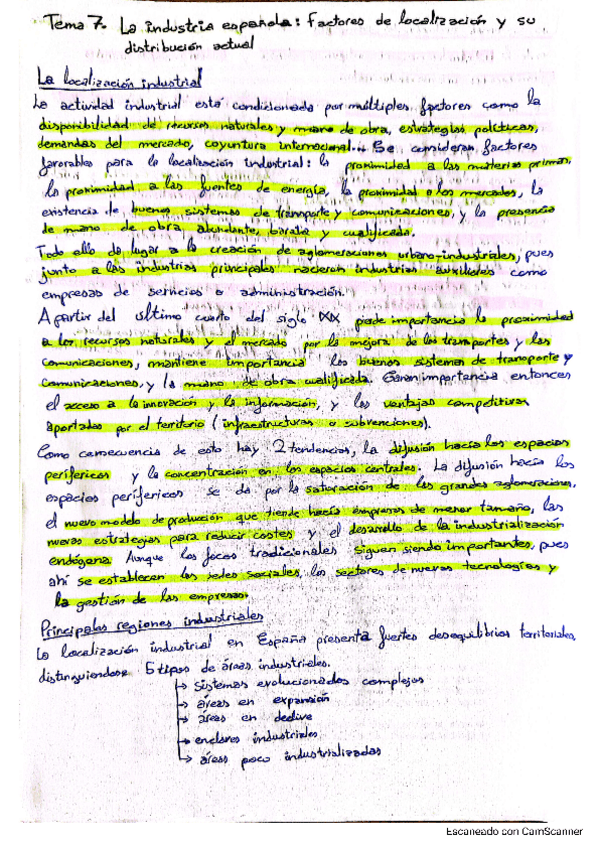 Tema 7. La industria española: factores de localización y su
distribución actual
La localización industrial
La actividad industrial está condicionada por múltiples factores como la
disponibilidad de recursos naturales y mano de obra, estrategias políticas,
demandas del mercado, coyuntura internacional... Se consideran factores
favorables para la localización industrial: la proximidad a las materias primas,
la proximidad a las fuentes de energía, la proximidad a los mercados, la
existencia de buenos sistemas de transporte y comunicaciones, y la presencia
de mano de obra abundante, barata y cualificada.
Todo ello da lugar a la creación de aglomeraciones urbano-industriales, pues
junto a las industrias principales nacieron industrias auxiliares como
empresas de servicios o administración.
A partir del último cuarto del siglo XX pierde importancia la proximidad
a los recursos naturales y el mercado por la mejora de los transportes y las
comunicaciones, mantiene importancia los buenos sistemas de transporte y
comunicaciones, y la mano de obra cualificada. Ganan importancia entonces
el acceso a la innovación y la información, y las ventajas competitivas
aportadas por el territorio (infraestructuras o subvenciones).
Como consecuencia de esto hay 2 tendencias, la difusión hacia los espacios
periféricos y la concentración en los espacios centrales. La difusión hacia los
espacios periféricos se da por la saturación de las grandes aglomeraciones,
el nuevo modelo de producción que tiende hacia empresas de menor tamaño, las
nuevas estrategias para reducir costes y el desarrollo de la industrialización
endógena. Aunque los focos tradicionales siguen siendo importantes, pues
ahí se establecen las sedes sociales, los sectores de nuevas tecnologías y
la gestión de las empresas.
Principales regiones industriales
La localización industrial en España presenta fuertes desequilibrios territoriales,
distinguiendose 5 tipos de áreas industriales.
↳ sistemas evolucionados complejos
↳ áreas en expansión
↳ áreas en declive
↳ enclaves industriales
↳ áreas poco industrializadas
Escaneado con CamScanner